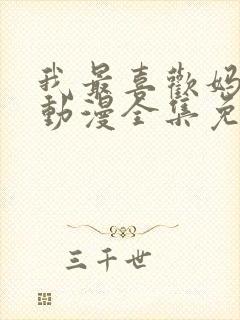 我最喜歡媽
動漫全集免
三千世